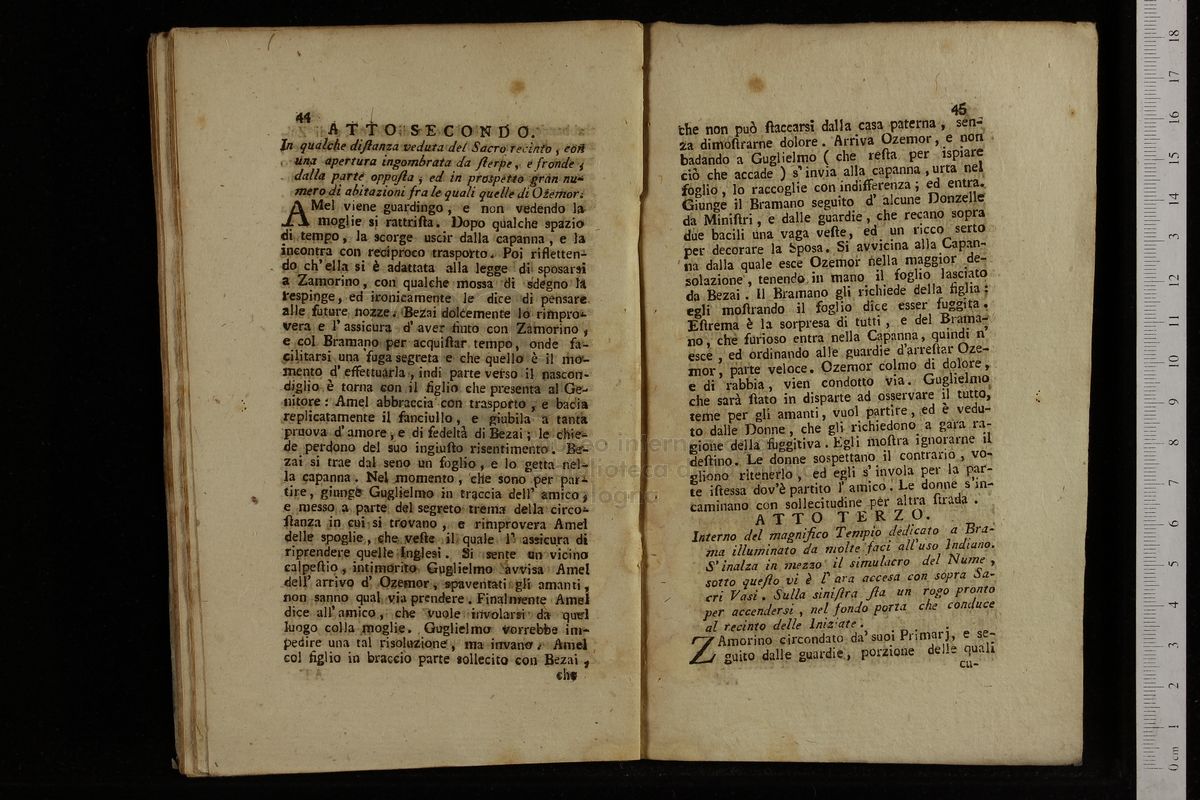 44
ATTO SECONDO.
In qualche distanza veduta del Sacro recinto, con
una apertura ingombrata da sterpe, e fronde,
dalla parte opposta, ed in prospetto gran nu-
mero di abitazioni fra le quali quelle di Ozemor.
AMel viene guardingo, e non vedendo la
moglie si rattrista. Dopo qualche spazio
di tempo, la scorge uscir dalla capanna, e la
incontra con reciproco trasporto. Poi rifletten-
do ch'ella si è adattata alla legge di sposarsi
a Zamorino, con qualche mossa di sdegno la
respinge, ed ironicamente le dice di pensare
alle future nozze. Bezai dolcemente lo rimpro-
vera e l'assicura d'aver finto con Zamorino,
e col Bramano per acquistar tempo, onde fa-
cilitarsi una fuga segreta e che quello è il mo-
mento d'effettuarla, indi parte verso il nascon-
diglio è torna con il figlio che presenta al Ge-
nitore: Amel abbraccia con trasporto, e bacia
replicatamente il fanciullo, e giubila a tanta
pruova d'amore, e di fedeltà di Bezai; le chie-
de perdono del suo ingiusto risentimento. Be-
zai si trae dal seno un foglio, e lo getta nel-
la capanna. Nel momento, che sono per par-
tire, giunge Guglielmo in traccia dell'amico,
e messo a parte del segreto trema della circo-
stanza in cui si trovano, e rimprovera Amel
delle spoglie, che veste il quale l'assicura di
riprendere quelle Inglesi. Si sente un vicino
calpestio, intimorito Guglielmo avvisa Amel
dell'arrivo d'Ozemor, spaventati gli amanti,
non sanno qual via prendere. Finalmente Amel
dice all'amico, che vuole involarsi da quel
luogo colla moglie. Guglielmo vorrebbe im-
pedire una tal risoluzione, ma invano. Amel
col figlio in braccio parte sollecito con Bezai,
che
45
che non può staccarsi dalla casa paterna, sen-
za dimostrarne dolore. Arriva Ozemor, e non
badando a Guglielmo (che resta per ispiare
ciò che accade) s'invia alla capanna, urta nel
foglio, lo raccoglie con indifferenza; ed entra.
Giunge il Bramano seguito d'alcune Donzelle
da Ministri, e dalle guardie, che recano sopra
due bacili una vaga veste, ed un ricco serto
per decorare la Sposa. Si avvicina alla Capan-
na dalla quale esce Ozemor nella maggior de-
solazione, tenendo in mano il foglio lasciato
da Bezai. Il Bramano gli richiede della figlia;
egli mostrando il foglio dice esser fuggita.
Estrema è la sorpresa di tutti, e del Brama-
no, che furioso entra nella Capanna, quindi n'
esce, ed ordinando alle guardie d'arrestar Oze-
mor, parte veloce. Ozemor colmo di dolore,
e di rabbia, vien condotto via. Guglielmo
che sarà stato in disparte ad osservare il tutto,
teme per gli amanti, vuol partire, ed è vedu-
to dalle Donne, che gli richiedono a gara ra-
gione della fuggitiva. Egli mostra ignorarne il
destino. Le donne sospettano il contrario, vo-
gliono ritenerlo, ed egli s'invola per la par-
te istessa dov'è partito l'amico. Le donne s'in-
caminano con sollecitudine per altra strada.
ATTO TERZO.
Interno del magnifico Tempio dedicato a Bra-
ma illuminato da molte faci all'uso Indiano.
S'inalza in mezzo il simulacro del Nume,
sotto questo vi è l'ara accesa con sopra Sa-
cri Vasi. Sulla sinistra sta un rogo pronto
per accendersi, nel fondo porta che conduce
al recinto delle Iniziate.
ZAmorino circondato da'suoi Primarj, e se-
guito dalle guardie, porzione delle quali
cu-